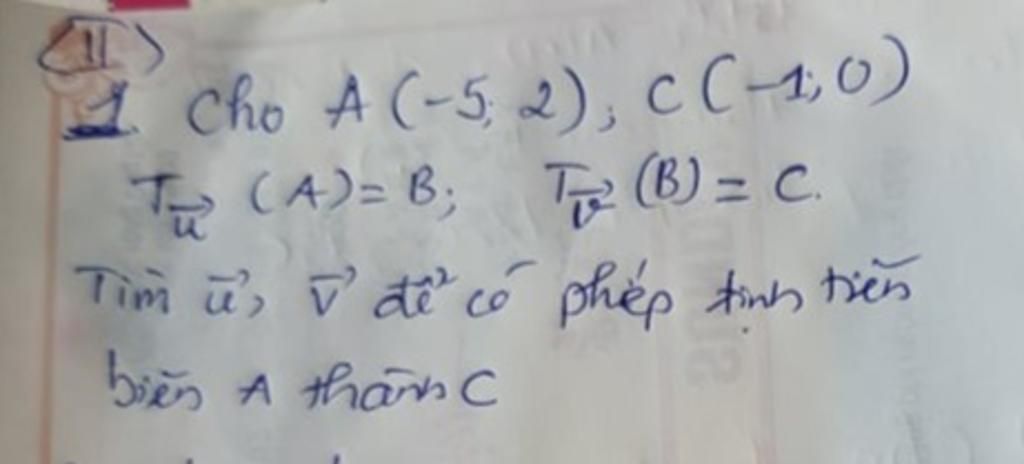 II
1. Cho A(-5; 2), C(-1; 0)
T_{\vec{u}} (A) = B; T_{\vec{v}} (B) = C.
Tìm \vec{u}, \vec{v} để có phép tịnh tiến
biến A thành C